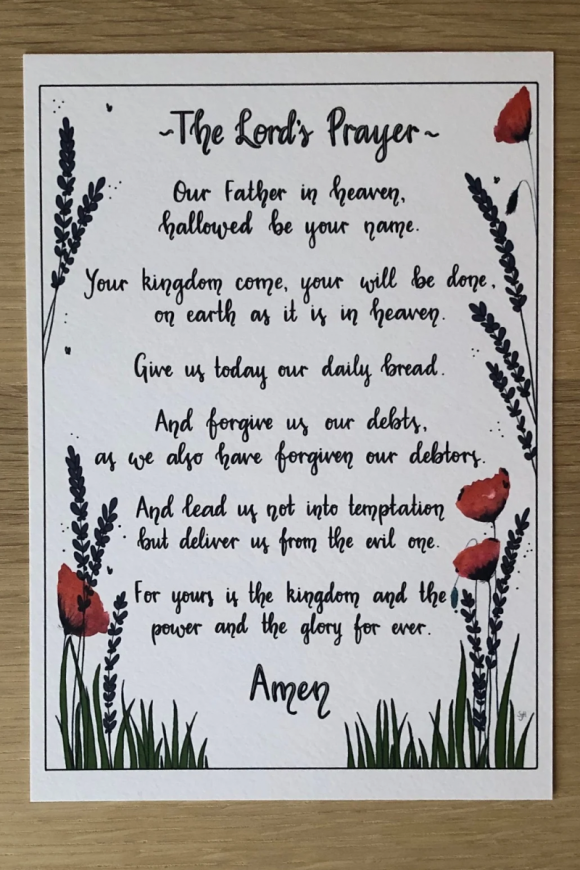 ~The Lord's Prayer~
Our Father in heaven,
hallowed be your name.
Your kingdom come, your will be done,
on earth as it is in heaven.
Give us today our daily bread.
And forgive us our debts,
as we also have forgiven our debtors.
And lead us not into temptation
but deliver us from the evil one.
For yours is the kingdom and the
power and the glory for ever.
Amen